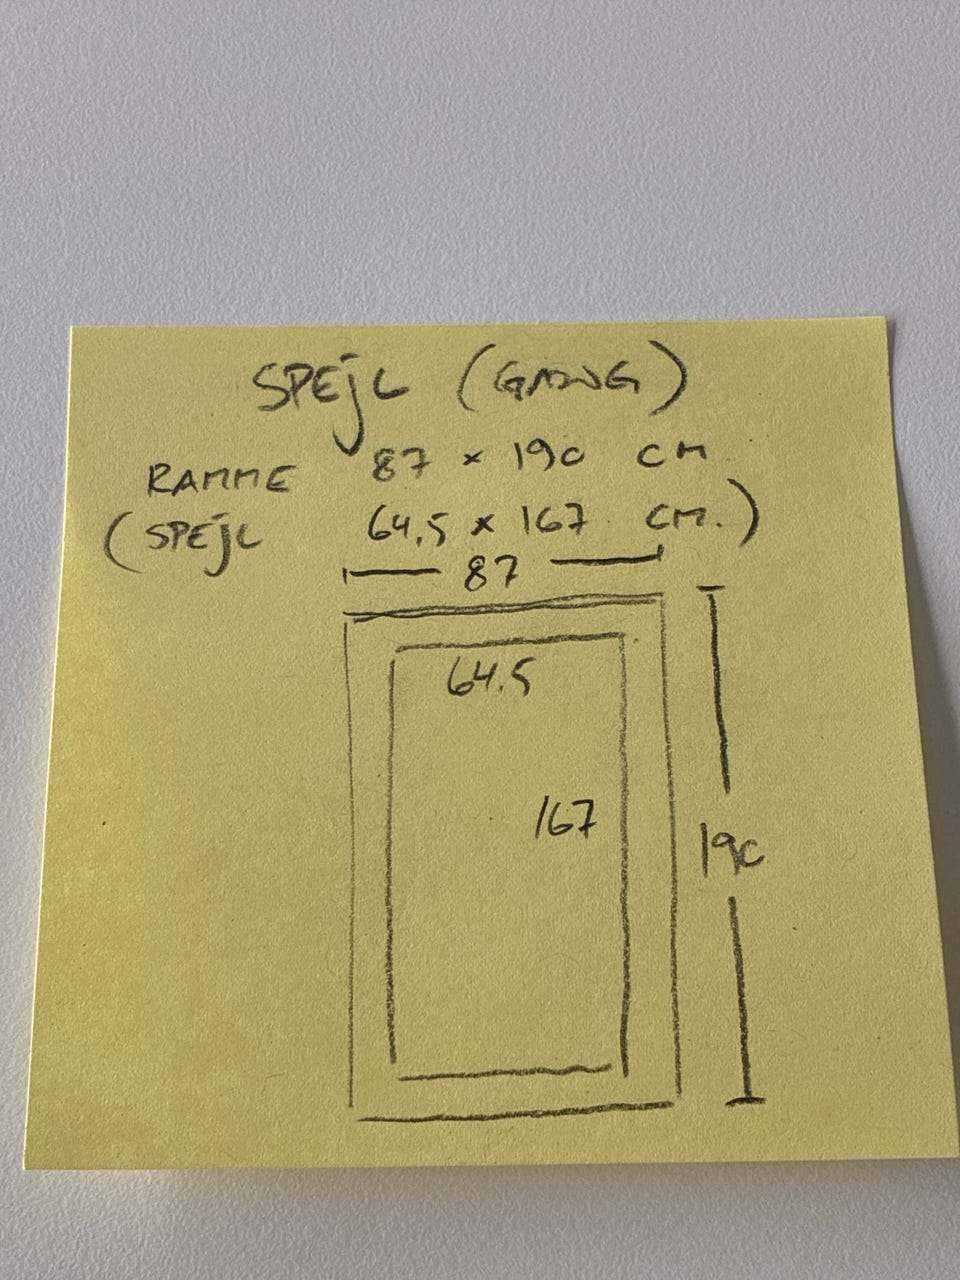 SPEjL (GANG)
RAMME 87 x 190 CM
(SPEjL 64,5 x 167 CM.)
87
64.5
167
190